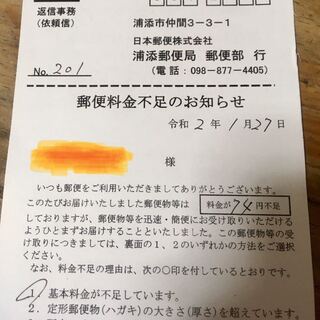 返信事務
(依頼信)
浦添市仲間3-3-1
日本郵便株式会社
浦添郵便局 郵便部 行
(電話:098-877-4405)
No. 201
郵便料金不足のお知らせ
令和 2年 1月 27日
様
いつも郵便をご利用いただきましてありがとうございます。
このたびお届けいたしました郵便物等は 料金が74円不足
しておりますが、郵便物等を迅速・簡便にお受け取りいただける
ようひとまずお届けすることといたしました。この郵便物等の受
け取りにつきましては、裏面の1、2のいずれかの方法をご選択
ください。
なお、料金不足の理由は、次の○印を付しているとおりです。
1. 基本料金が不足しています。
2. 定形郵便物(ハガキ)の大きさ(厚さ)を超えています。